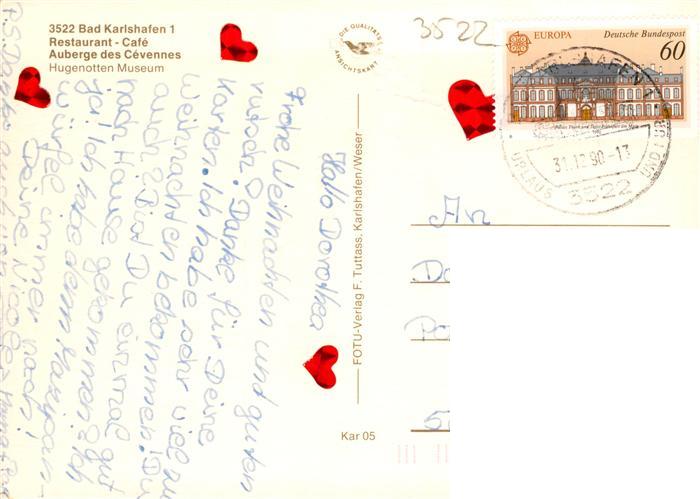 3522 Bad Karlshafen 1
Restaurant - Café
Auberge des Cévennes
Hugenotten Museum
DIE QUALITÄTS
ANSICHTSKART
3522
EUROPA Deutsche Bundespost
60
31.12.90-13
URLAUB UND KUR
3522
Hallo Dorothea
Frohe Weihnachten und guten
rutsch. Danke für Deine
Karten. Ich habe sehr viel zu
Weihnachten bekommen. Du
auch? Bist Du einmal gut
nach Hause gekommen? Ich
ja! Ich
würfel immer noch!
Deine Nicole
P.S. Danke
FOTU-Verlag F. Tuttass, Karlshafen/Weser
Kar 05
An